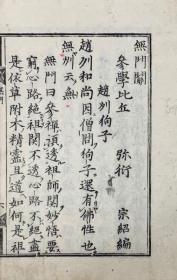 無門關
參學比丘 彌衍 宗紹編
趙州狗子
趙州和尚因僧問狗子還有佛性也
無州云無
無門曰參禪須透祖師關妙悟要
窮心路絕祖關不透心路不絕盡
是依草附木精靈且道如何是祖